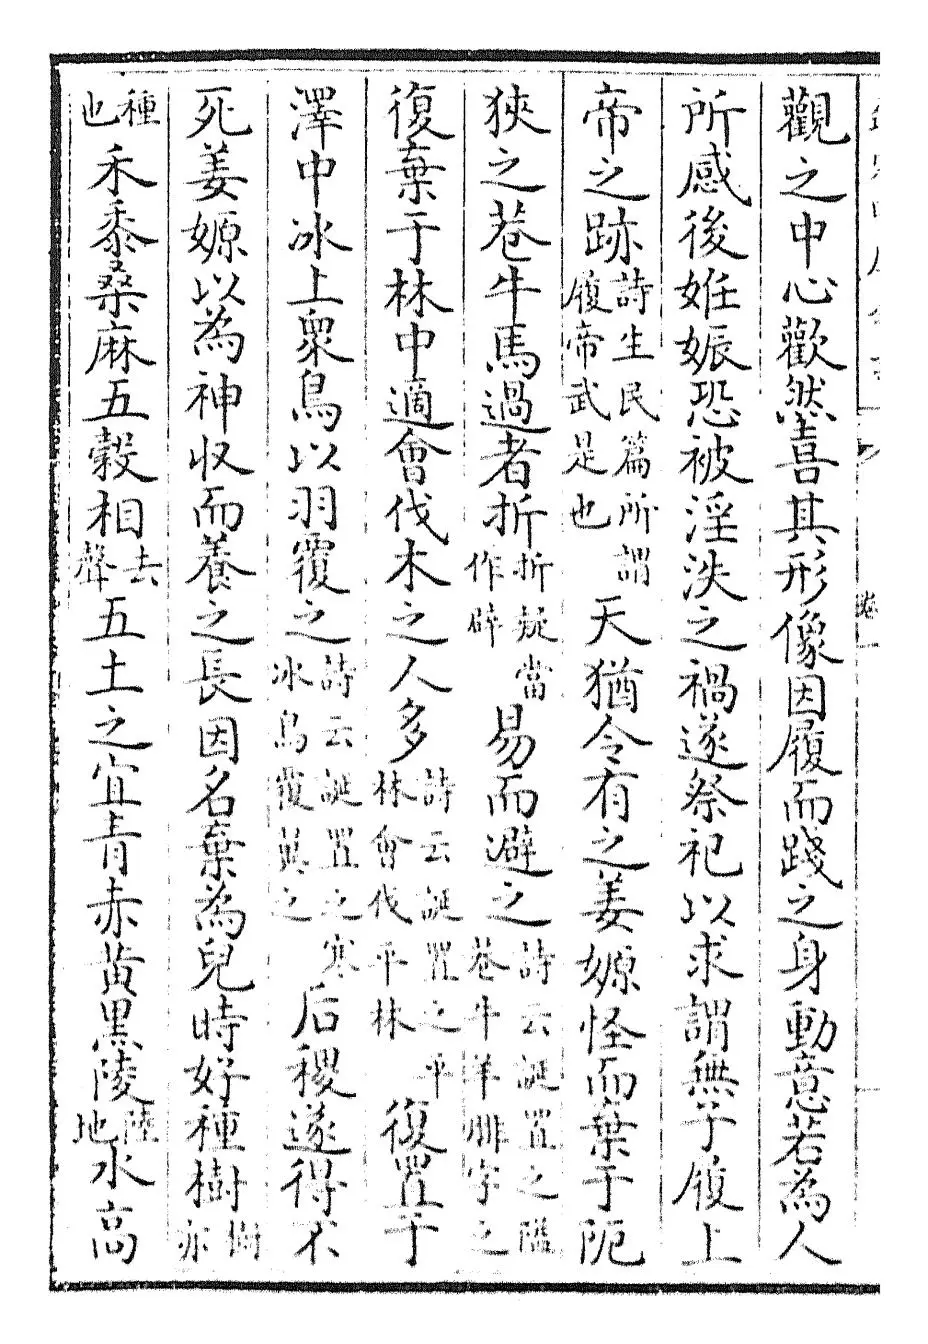 觀之中心歡然喜其形像因履而踐之身動意若為人
所感後姙娠恐被淫泆之禍遂祭祀以求謂無子履上
帝之跡詩生民篇所謂履帝武是也天猶令有之姜嫄怪而棄于阨
狹之巷牛馬過者折折疑當作辟易而避之詩云誕置之隘巷牛羊腓字之
復棄于林中適會伐木之人多詩云誕置之平林會伐平林復置于
澤中冰上衆鳥以羽覆之詩云誕置之寒冰鳥覆翼之后稷遂得不
死姜嫄以為神收而養之長因名棄為兒時好種樹樹亦
種也禾黍桑麻五穀相去聲五土之宜青赤黃黒陵陸地水高
卷一